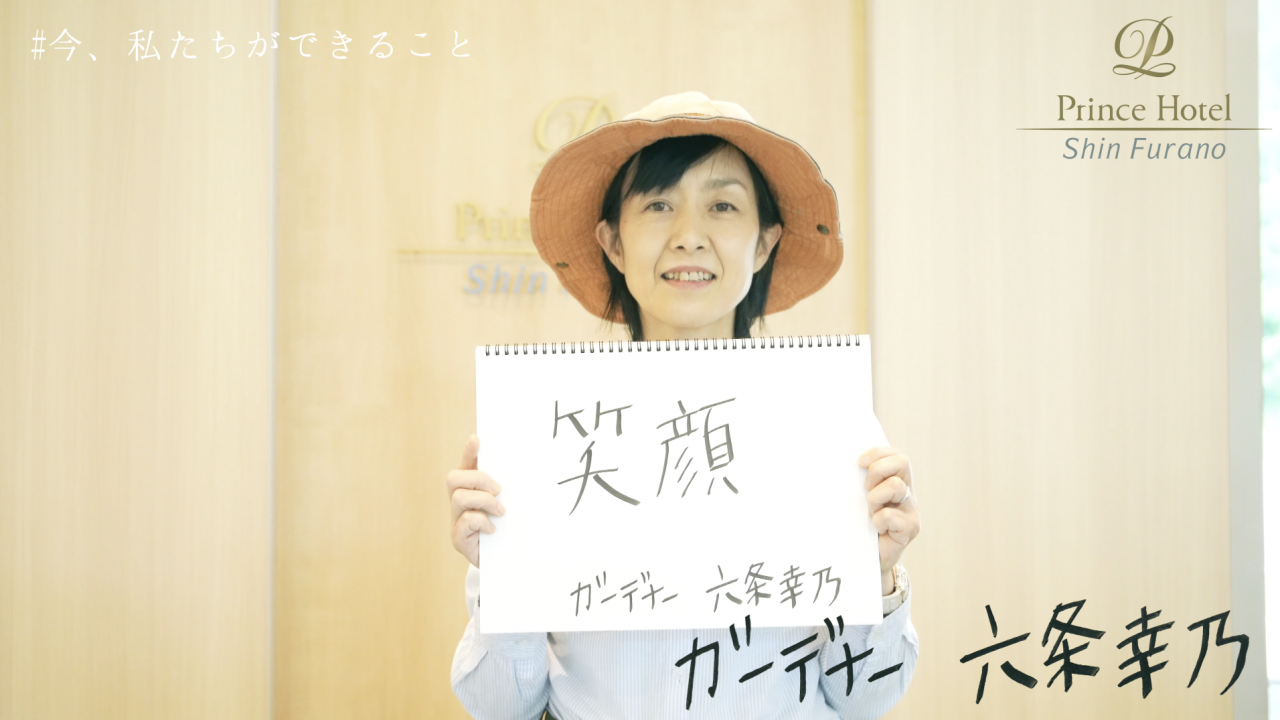 #今、私たちができること
Prince Hotel
Shin Furano
Prin
Shin
笑顔
ガーデナー 六条幸乃
ガーデナー 六条幸乃